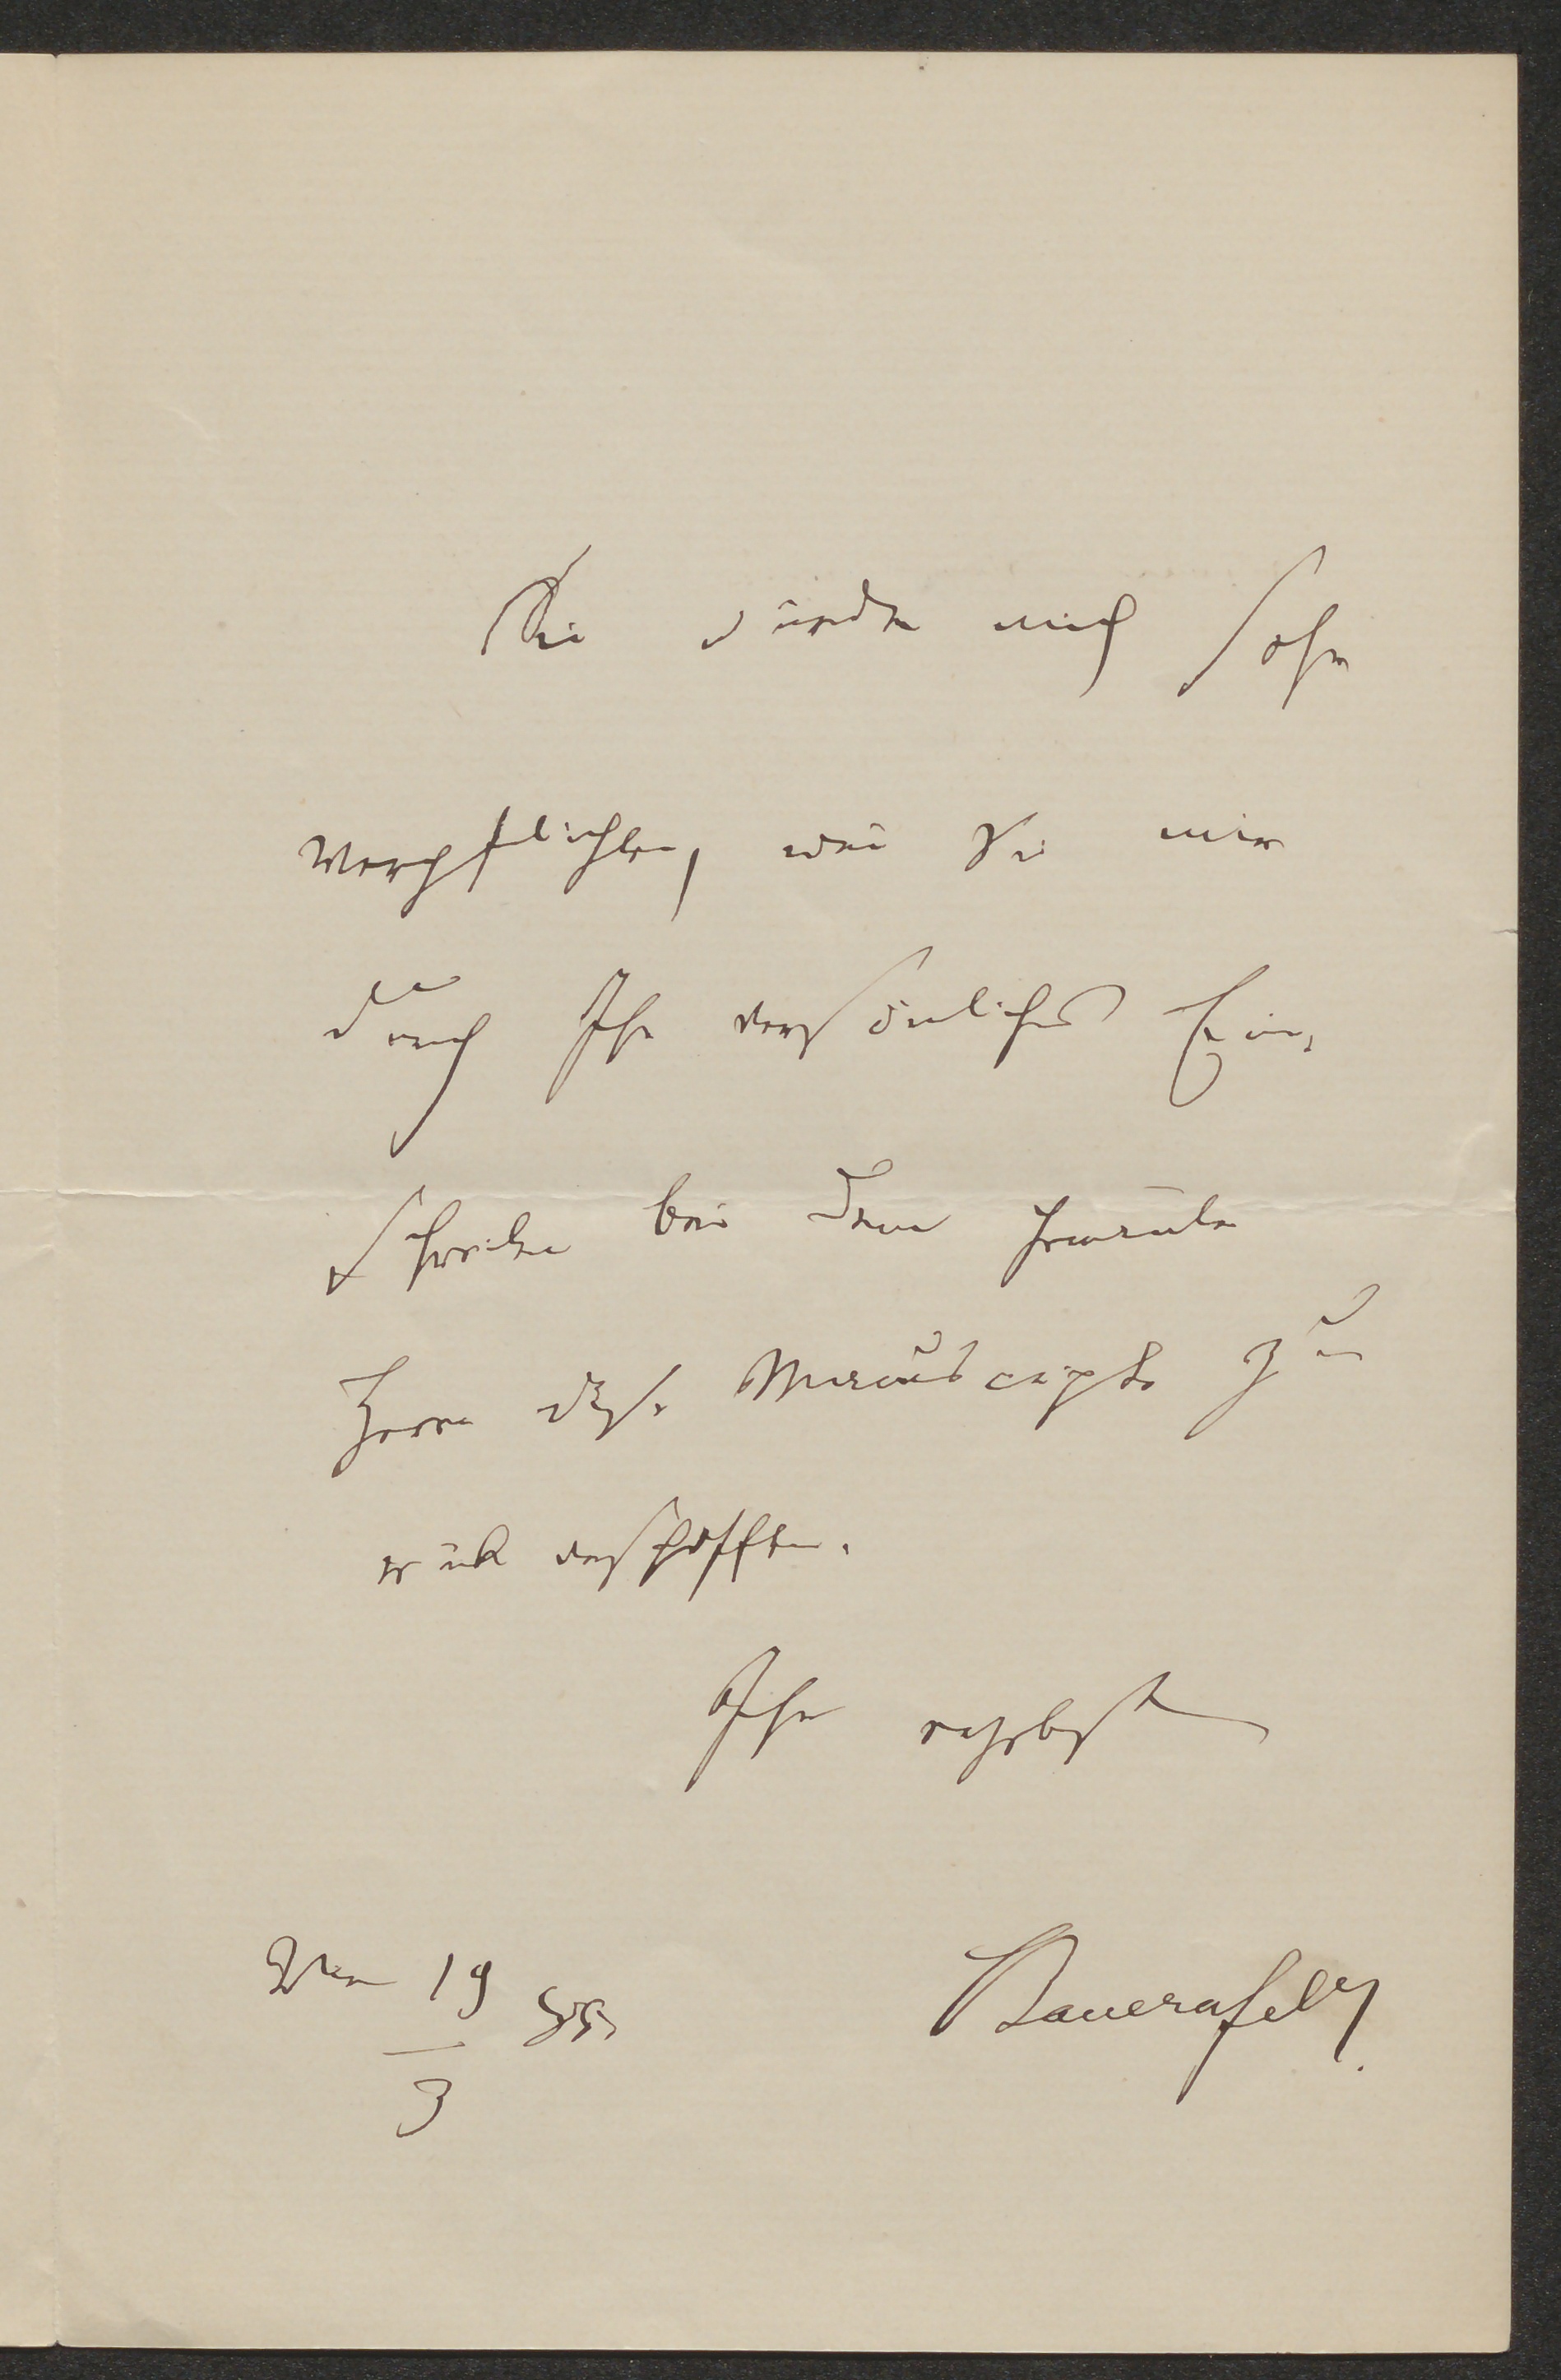 Sie würden mich sehr
verpflichten, wenn Sie mir
durch Ihr persönliches Ein-
schreiten bei dem
Herrn Manuscripte zu
rück verschafften.
Ihr ergebenster
Wien 19
3
Bauernfeld.